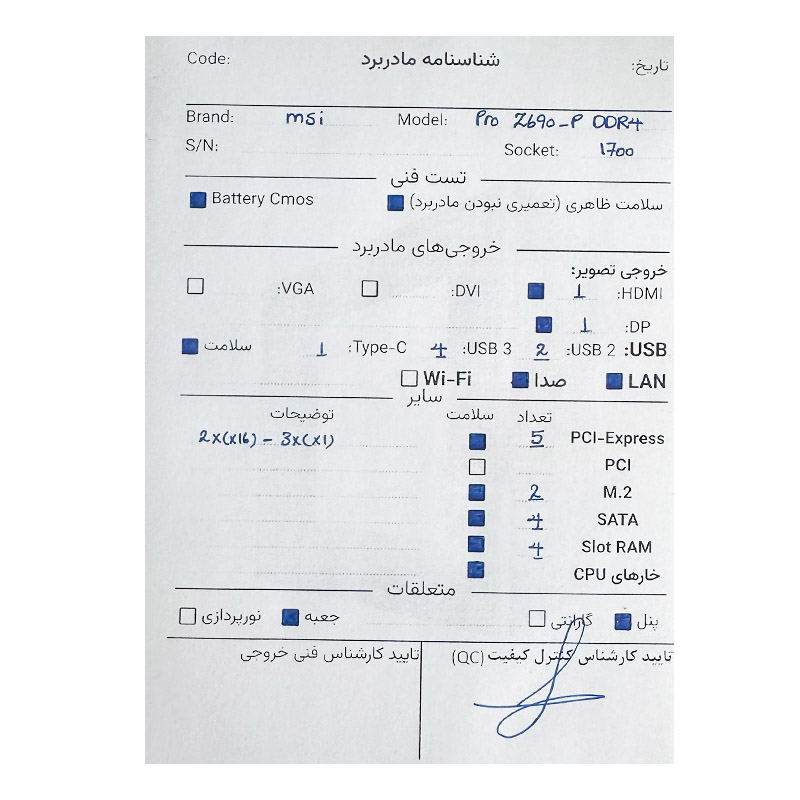 شناسنامه مادربرد
Code: تاریخ:
Brand: msi Model: Pro Z690-P DDR4
S/N: Socket: 1700
تست فنی
سلامت ظاهری (تعمیری نبودن مادربرد) Battery Cmos
خروجی‌های مادربرد
خروجی تصویر:
HDMI: 1 DVI: VGA:
DP: 1
USB: USB 2: 2 USB 3: 4 Type-C: 1 سلامت
LAN صدا Wi-Fi
سایر
تعداد سلامت توضیحات
PCI-Express 5 2x(x16) - 3x(x1)
PCI
M.2 2
SATA 4
Slot RAM 4
خارهای CPU
متعلقات
پنل گارانتی جعبه نورپردازی
تایید کارشناس کنترل کیفیت (QC) تایید کارشناس فنی خروجی